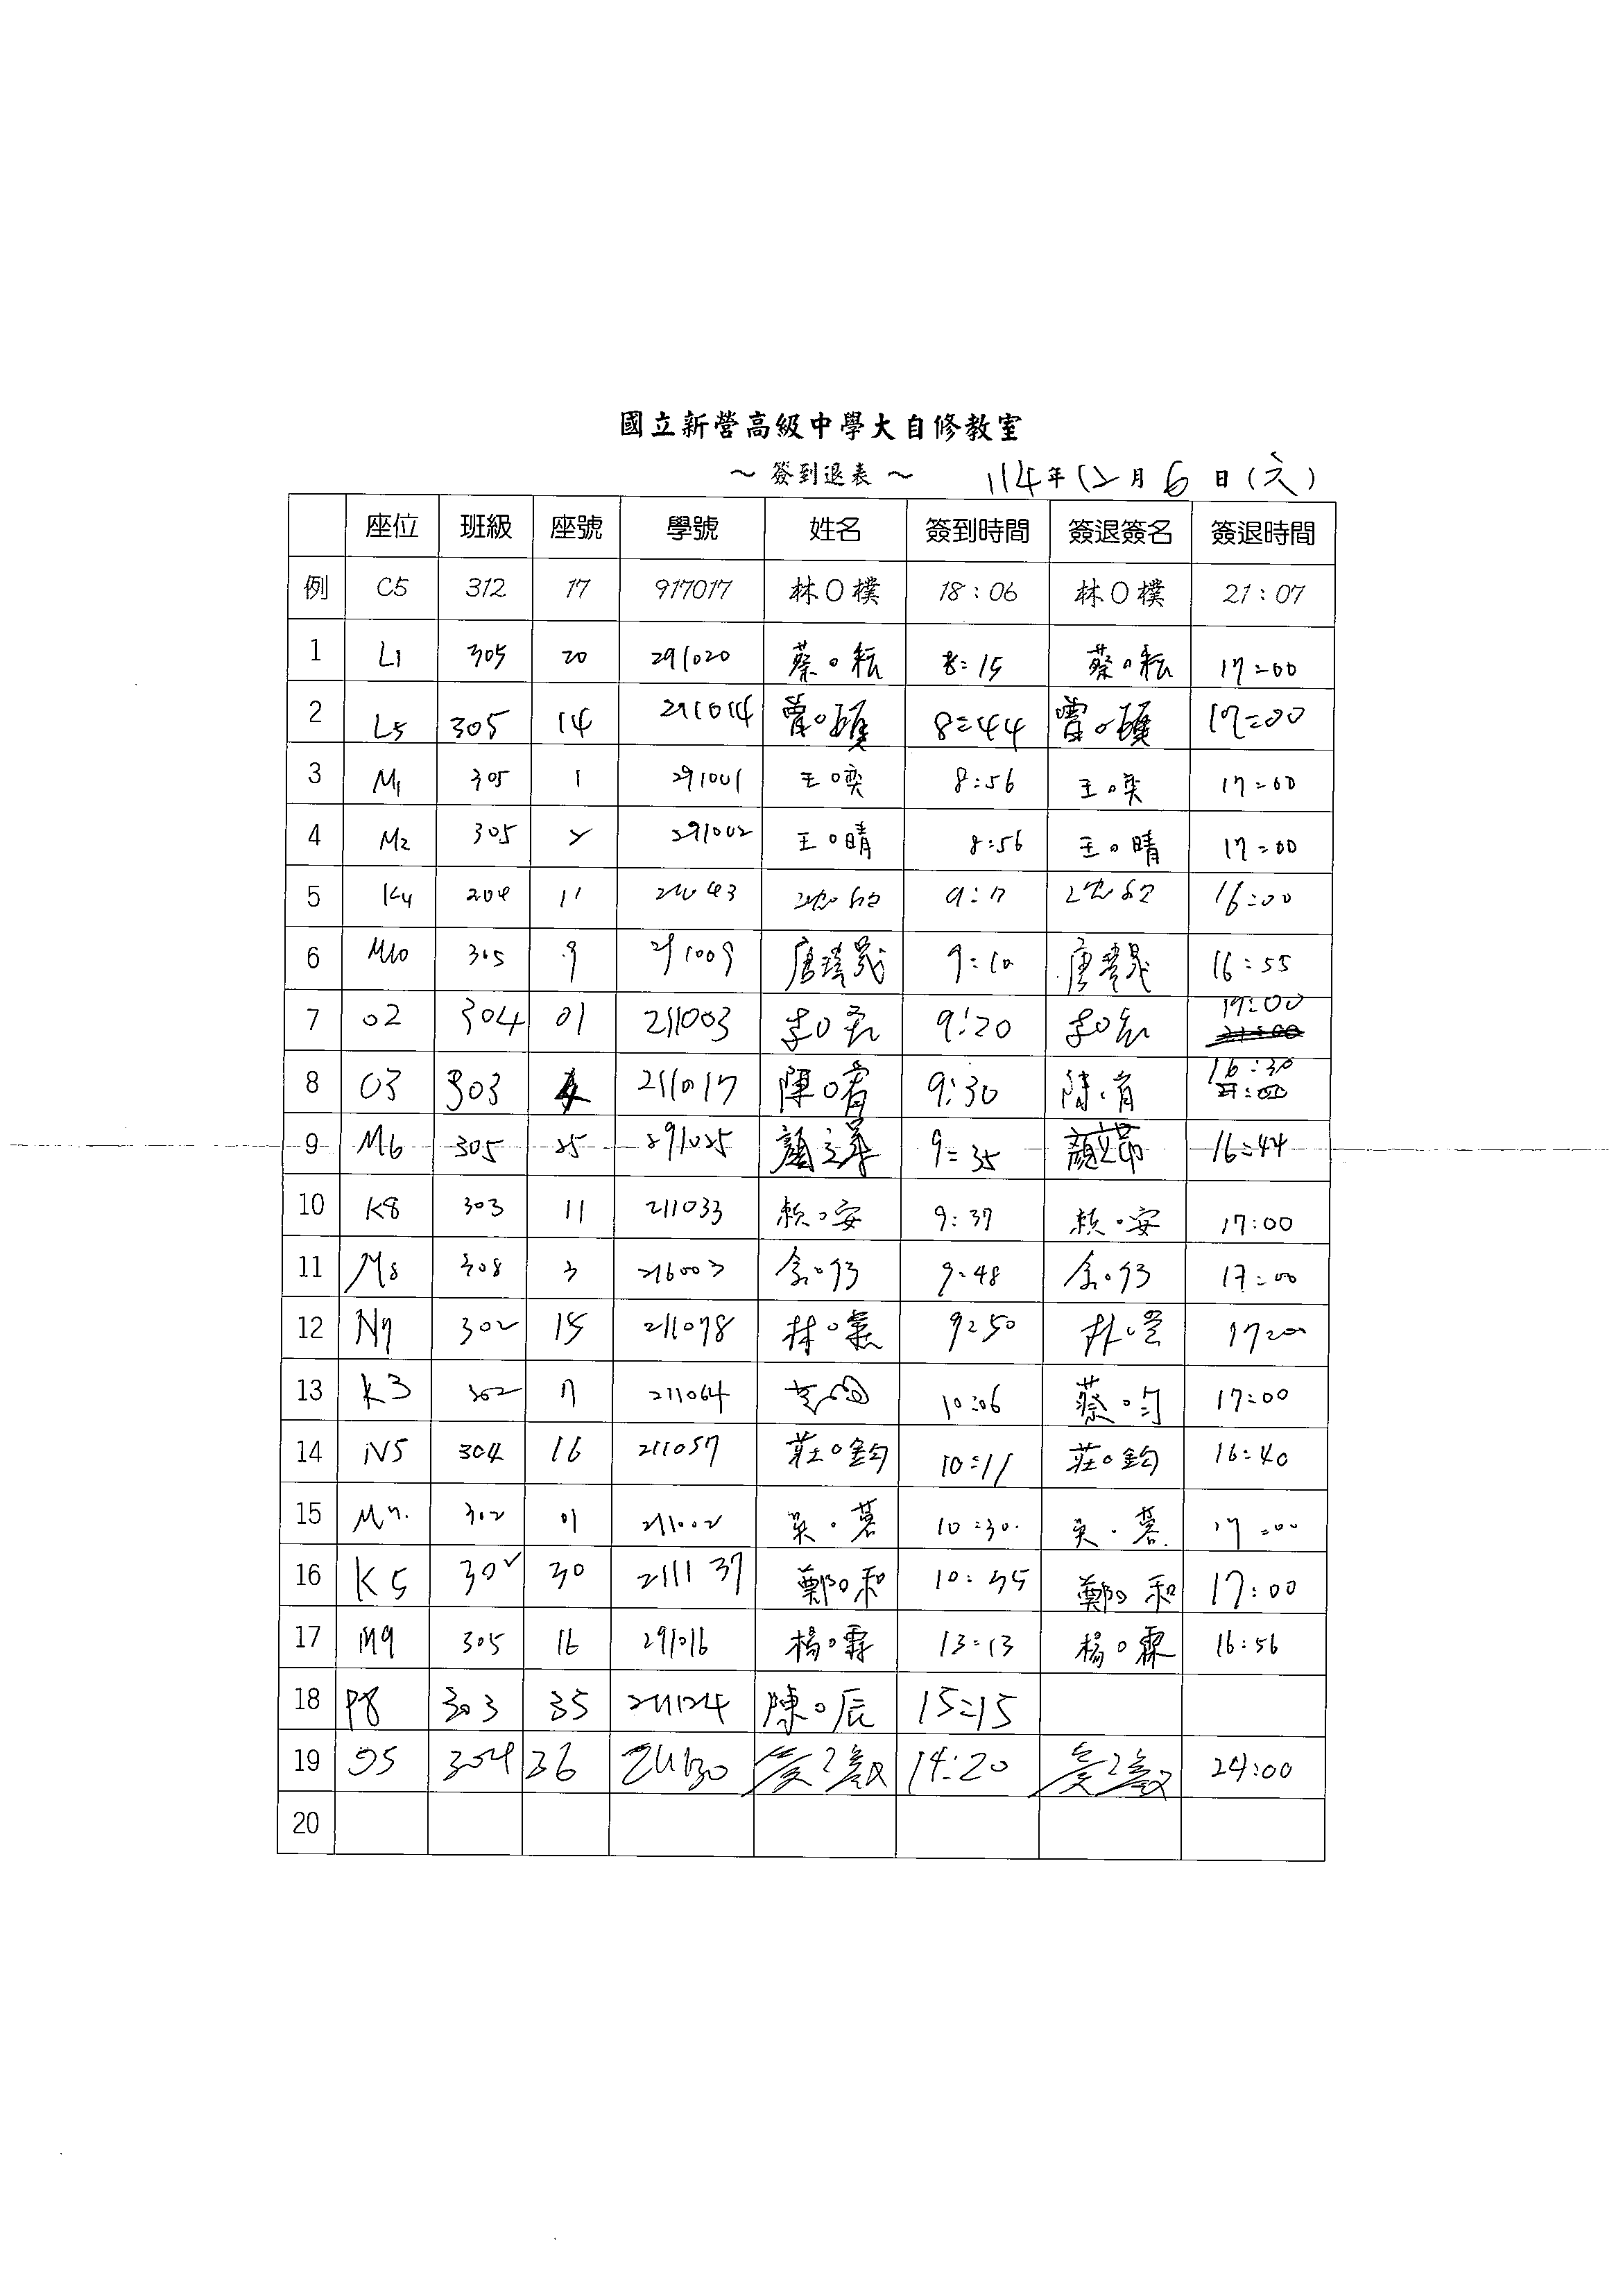 國立新營高級中學大自修教室
～ 簽到退表 ～ 114年12月6日(六)
座位 班級 座號 學號 姓名 簽到時間 簽退簽名 簽退時間
例 C5 312 17 917017 林O樸 18:06 林O樸 21:07
1 L1 305 20 291020 蔡o耘 8:15 蔡o耘 17:00
2 L5 305 14 291014 8:44 17:00
3 M1 305 1 291001 王o奕 8:56 王o奕 17:00
4 M2 305 2 291002 王o晴 8:56 王o晴 17:00
5 K4 204 11 9:11 16:00
6 M10 305 9 291009 唐 9:10 唐 16:55
7 O2 304 01 211003 李o 9:20 李o 17:00
8 O3 303 211017 陳o 9:30 陳 16:30
9 M6 305 25 291025 顏 9:35 顏 16:44
10 K8 303 11 211033 賴o安 9:37 賴o安 17:00
11 M8 308 3 216003 余o 9:48 余o 17:00
12 N9 302 15 211078 林o 9:50 林o 17:00
13 K3 302 7 211064 10:06 蔡o勻 17:00
14 N5 304 16 211057 莊o鈞 10:11 莊o鈞 16:40
15 M7 302 01 211002 吳o 10:30 吳o 17:00
16 K5 302 30 211137 鄭o和 10:35 鄭o和 17:00
17 M9 305 16 291016 楊o霖 13:13 楊o霖 16:56
18 P8 303 35 211124 陳o辰 15:15
19 O5 304 36 211130 14:20 24:00
20